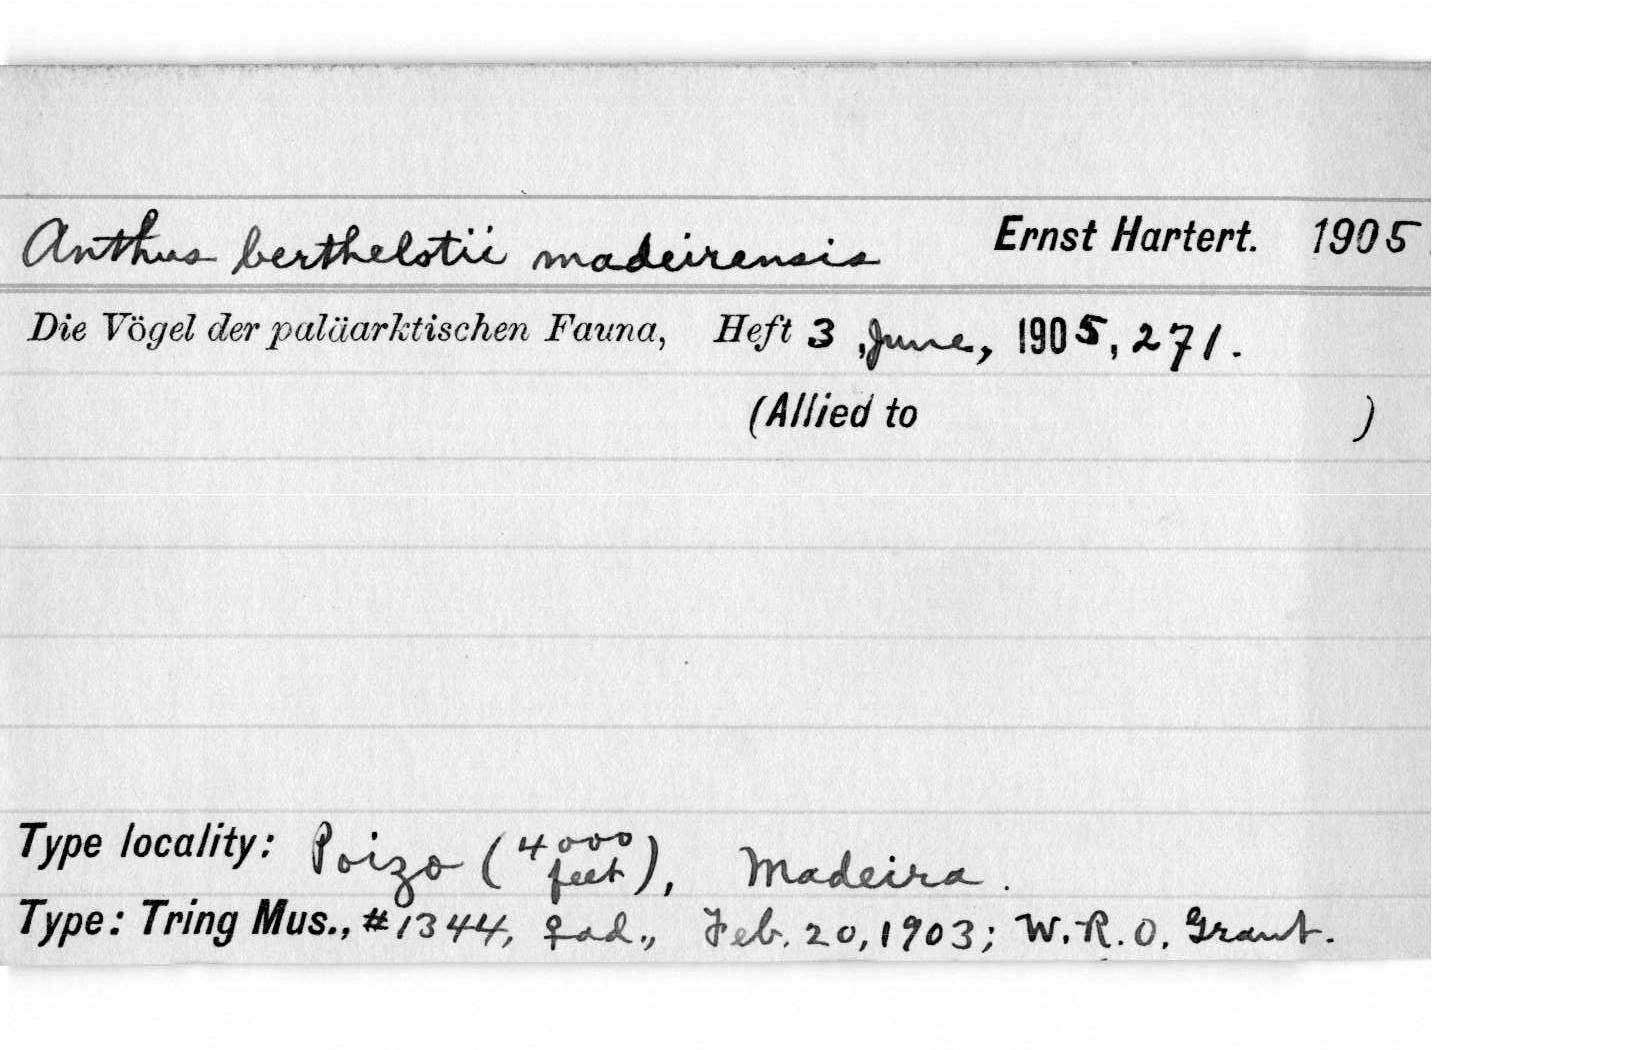 Anthus berthelotii madeirensis Ernst Hartert. 1905
Die Vögel der paläarktischen Fauna, Heft 3, June, 1905, 271.
(Allied to )
Type locality: Poizo (4000 feet), Madeira.
Type: Tring Mus., #1344, ♀ ad., Feb. 20, 1903; W. R. O. Grant.